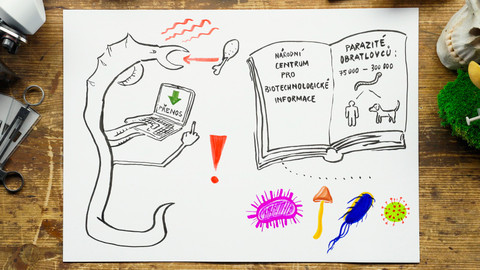 PŘENOS
NÁRODNÍ
CENTRUM
PRO
BIOTECHNOLOGICKÉ
INFORMACE
PARAZITÉ
OBRATLOVCŮ:
75 000 - 300 000